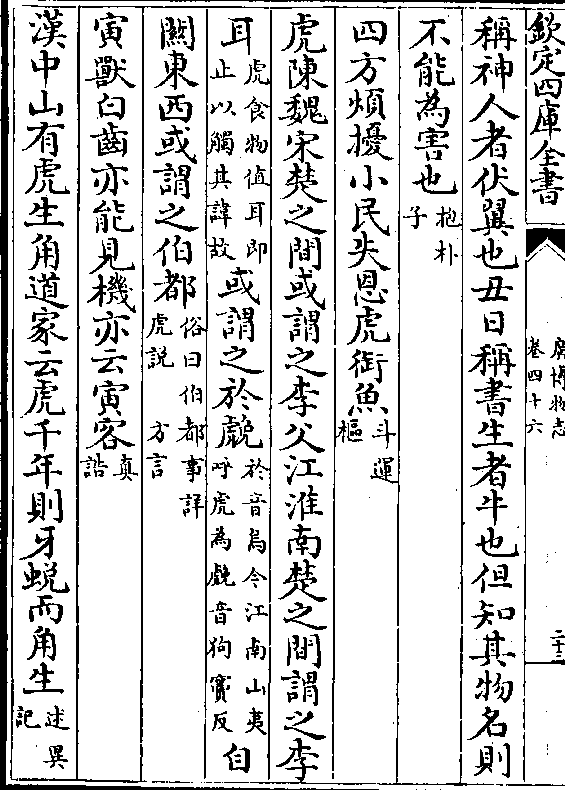 欽定四庫全書
廣博物志
卷四十六
二十二
稱神人者伏翼也丑日稱書生者牛也但知其物名則
不能為害也抱朴子
四方煩擾小民失恩虎銜魚斗運樞
虎陳魏宋楚之間或謂之李父江淮南楚之間謂之李
耳虎食物值耳即止以觸其諱故或謂之於䖘於音烏今江南山夷呼虎為䖘音狗竇反自
關東西或謂之伯都俗曰伯都事詳虎說　方言
寅獸白齒亦能見機亦云寅客真誥
漢中山有虎生角道家云虎千年則牙蛻而角生述異記